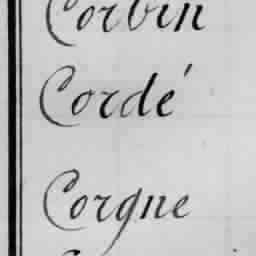 Corbin
Cordé
Corgne